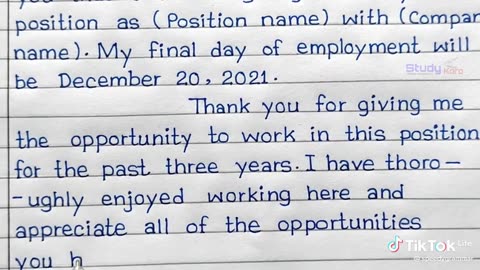 position as (Position name) with (Compan
name). My final day of employment will
be December 20, 2021.
Study
Karo
Thank you for giving me
the opportunity to work in this position
for the past three years. I have thoro-
-ughly enjoyed working here and
appreciate all of the opportunities
TikTok Lite
you h